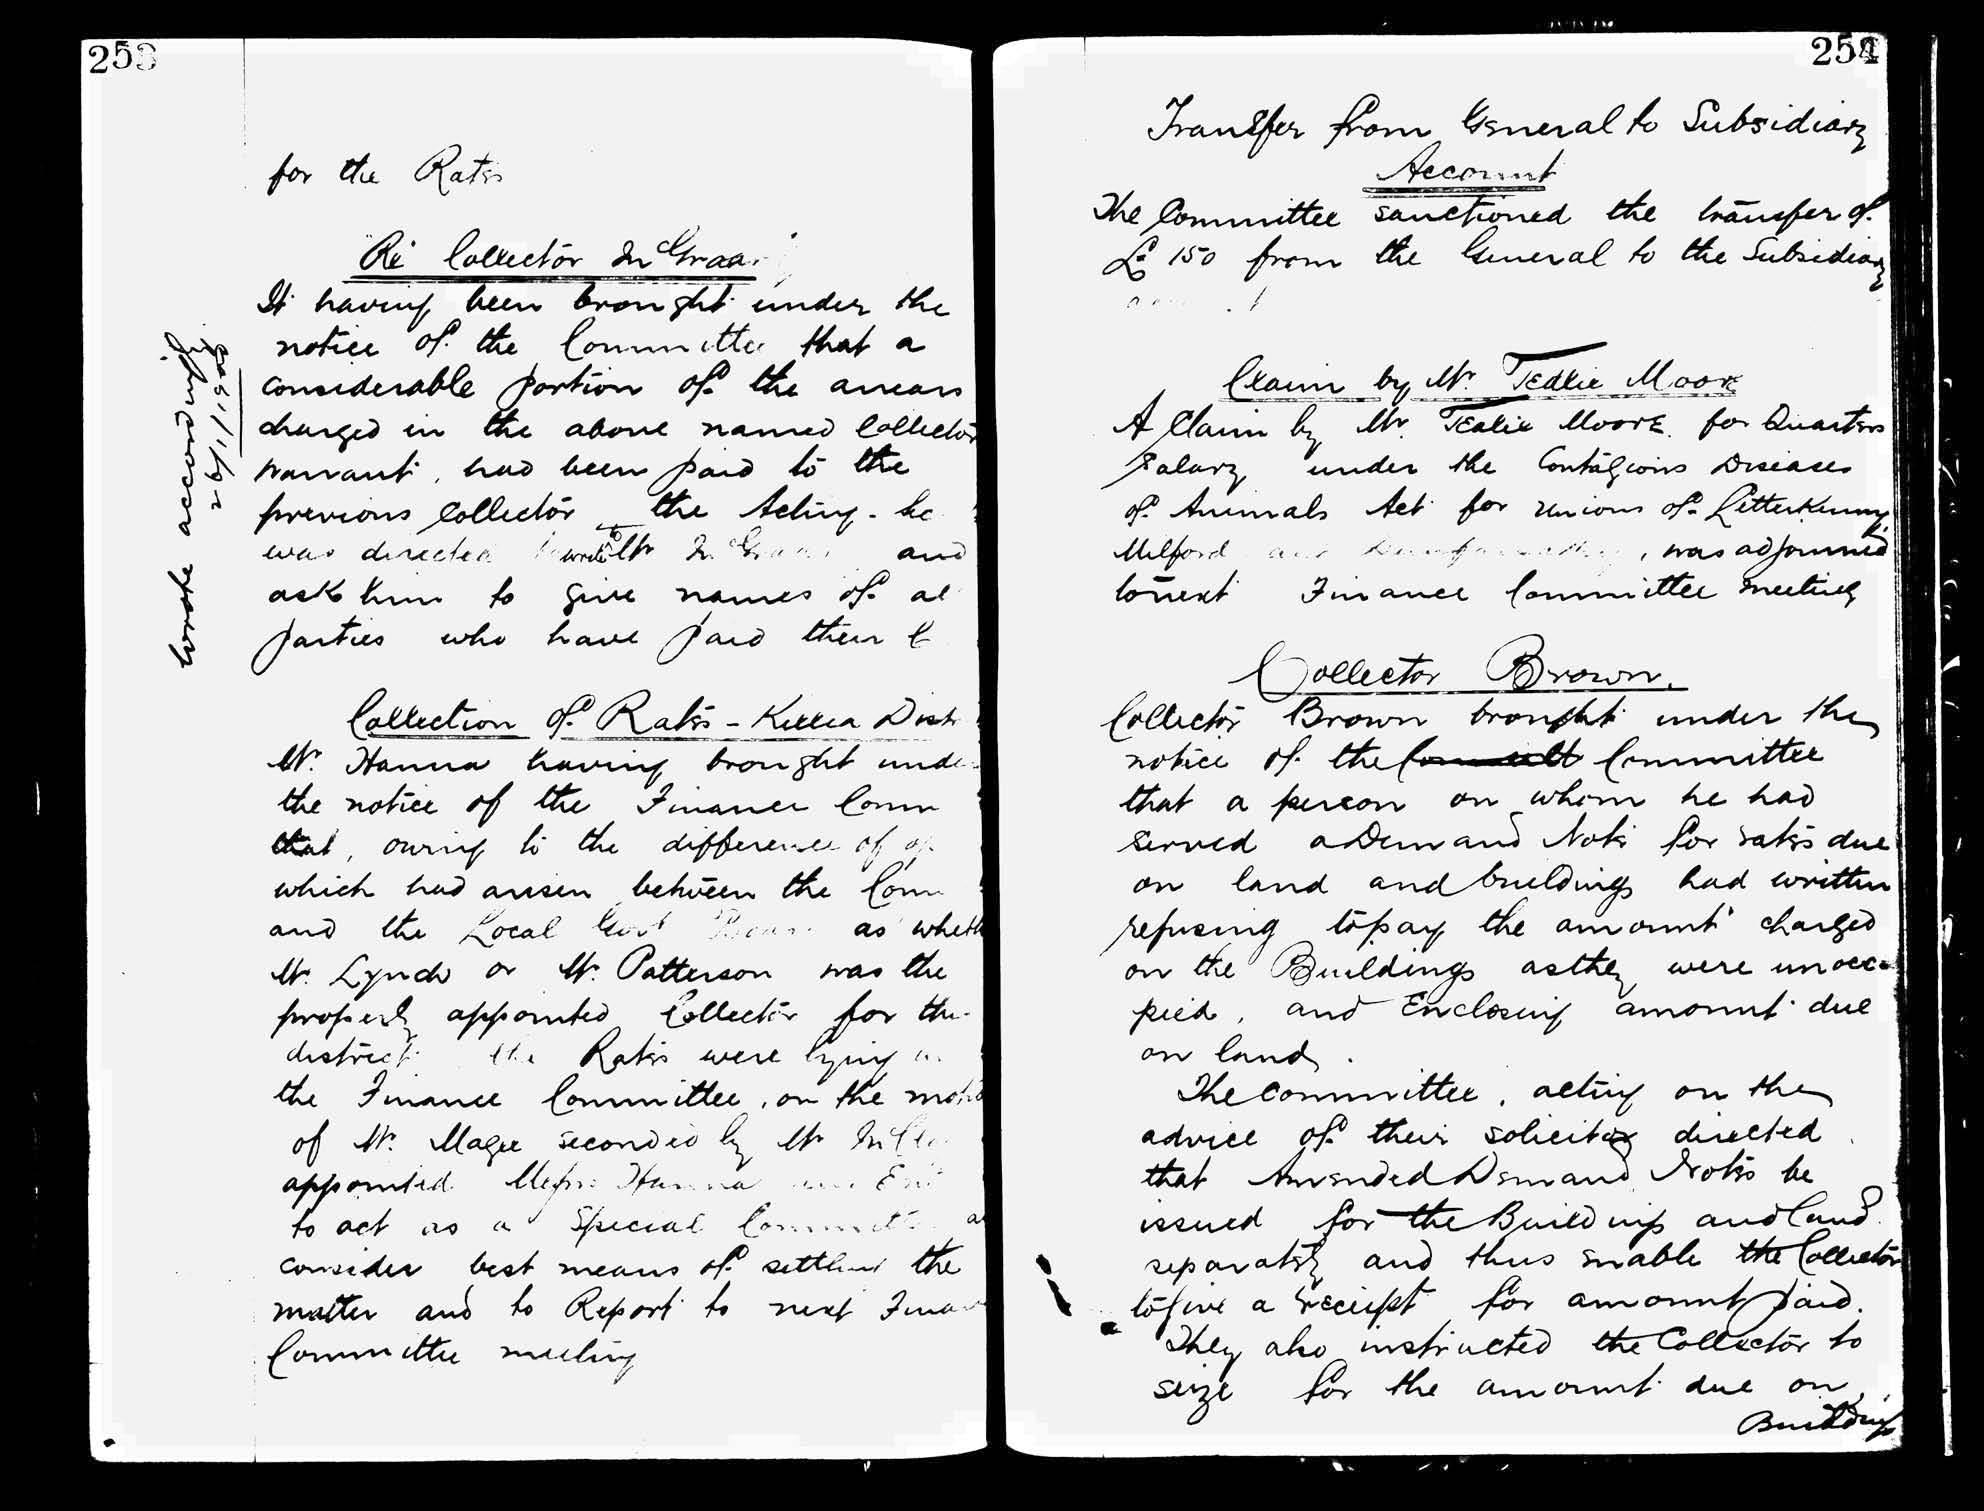 253
for the Rates
Re Collector McGrau
It having been brought under the
notice of the Committee that a
considerable portion of the arrears
charged in the above named Collector
warrant, had been paid to the
previous Collector the Acting
was directed to write Mr and
ask him to give names of al
parties who have paid their
wrote accordingly
26/11/1925
Collection of Rates - Killea Dist
Mr. Hanna having brought unde
the notice of the Finance Comm
that, owing to the difference of op
which had arisen between the Com
and the Local Govt Board as wheth
Mr. Lynch or Mr. Patterson was the
properly appointed Collector for the
district the Rates were lying
the Finance Committee, on the motio
of Mr. Magee seconded by Mr McCl
appointed Messrs Hanna
to act as a Special Committee
consider best means of settling the
matter and to Report to next Finan
Committee meeting
254
Transfer from General to Subsidiary
Account
The Committee sanctioned the transfer of
£150 from the General to the Subsidiary
Claim by Mr. Tedlie Moore
A Claim by Mr. Tedlie Moore for Quarters
Salary under the Contagious Diseases
of Animals Act for unions of Letterkenny,
Milford and Dunfanaghy, was adjourned
to next Finance Committee meeting
Collector Brown.
Collector Brown brought under the
notice of the Committee
that a person on whom he had
served a Demand Note for rates due
on land and buildings had written
refusing to pay the amount charged
on the Buildings as they were unoccu-
pied, and Enclosing amount due
on land.
The Committee, acting on the
advice of their solicitor directed
that Amended Demand Notes be
issued for the Buildings and Land
separately and thus enable the Collector
to give a receipt for amount paid.
They also instructed the Collector to
seize for the amount due on
Buildings